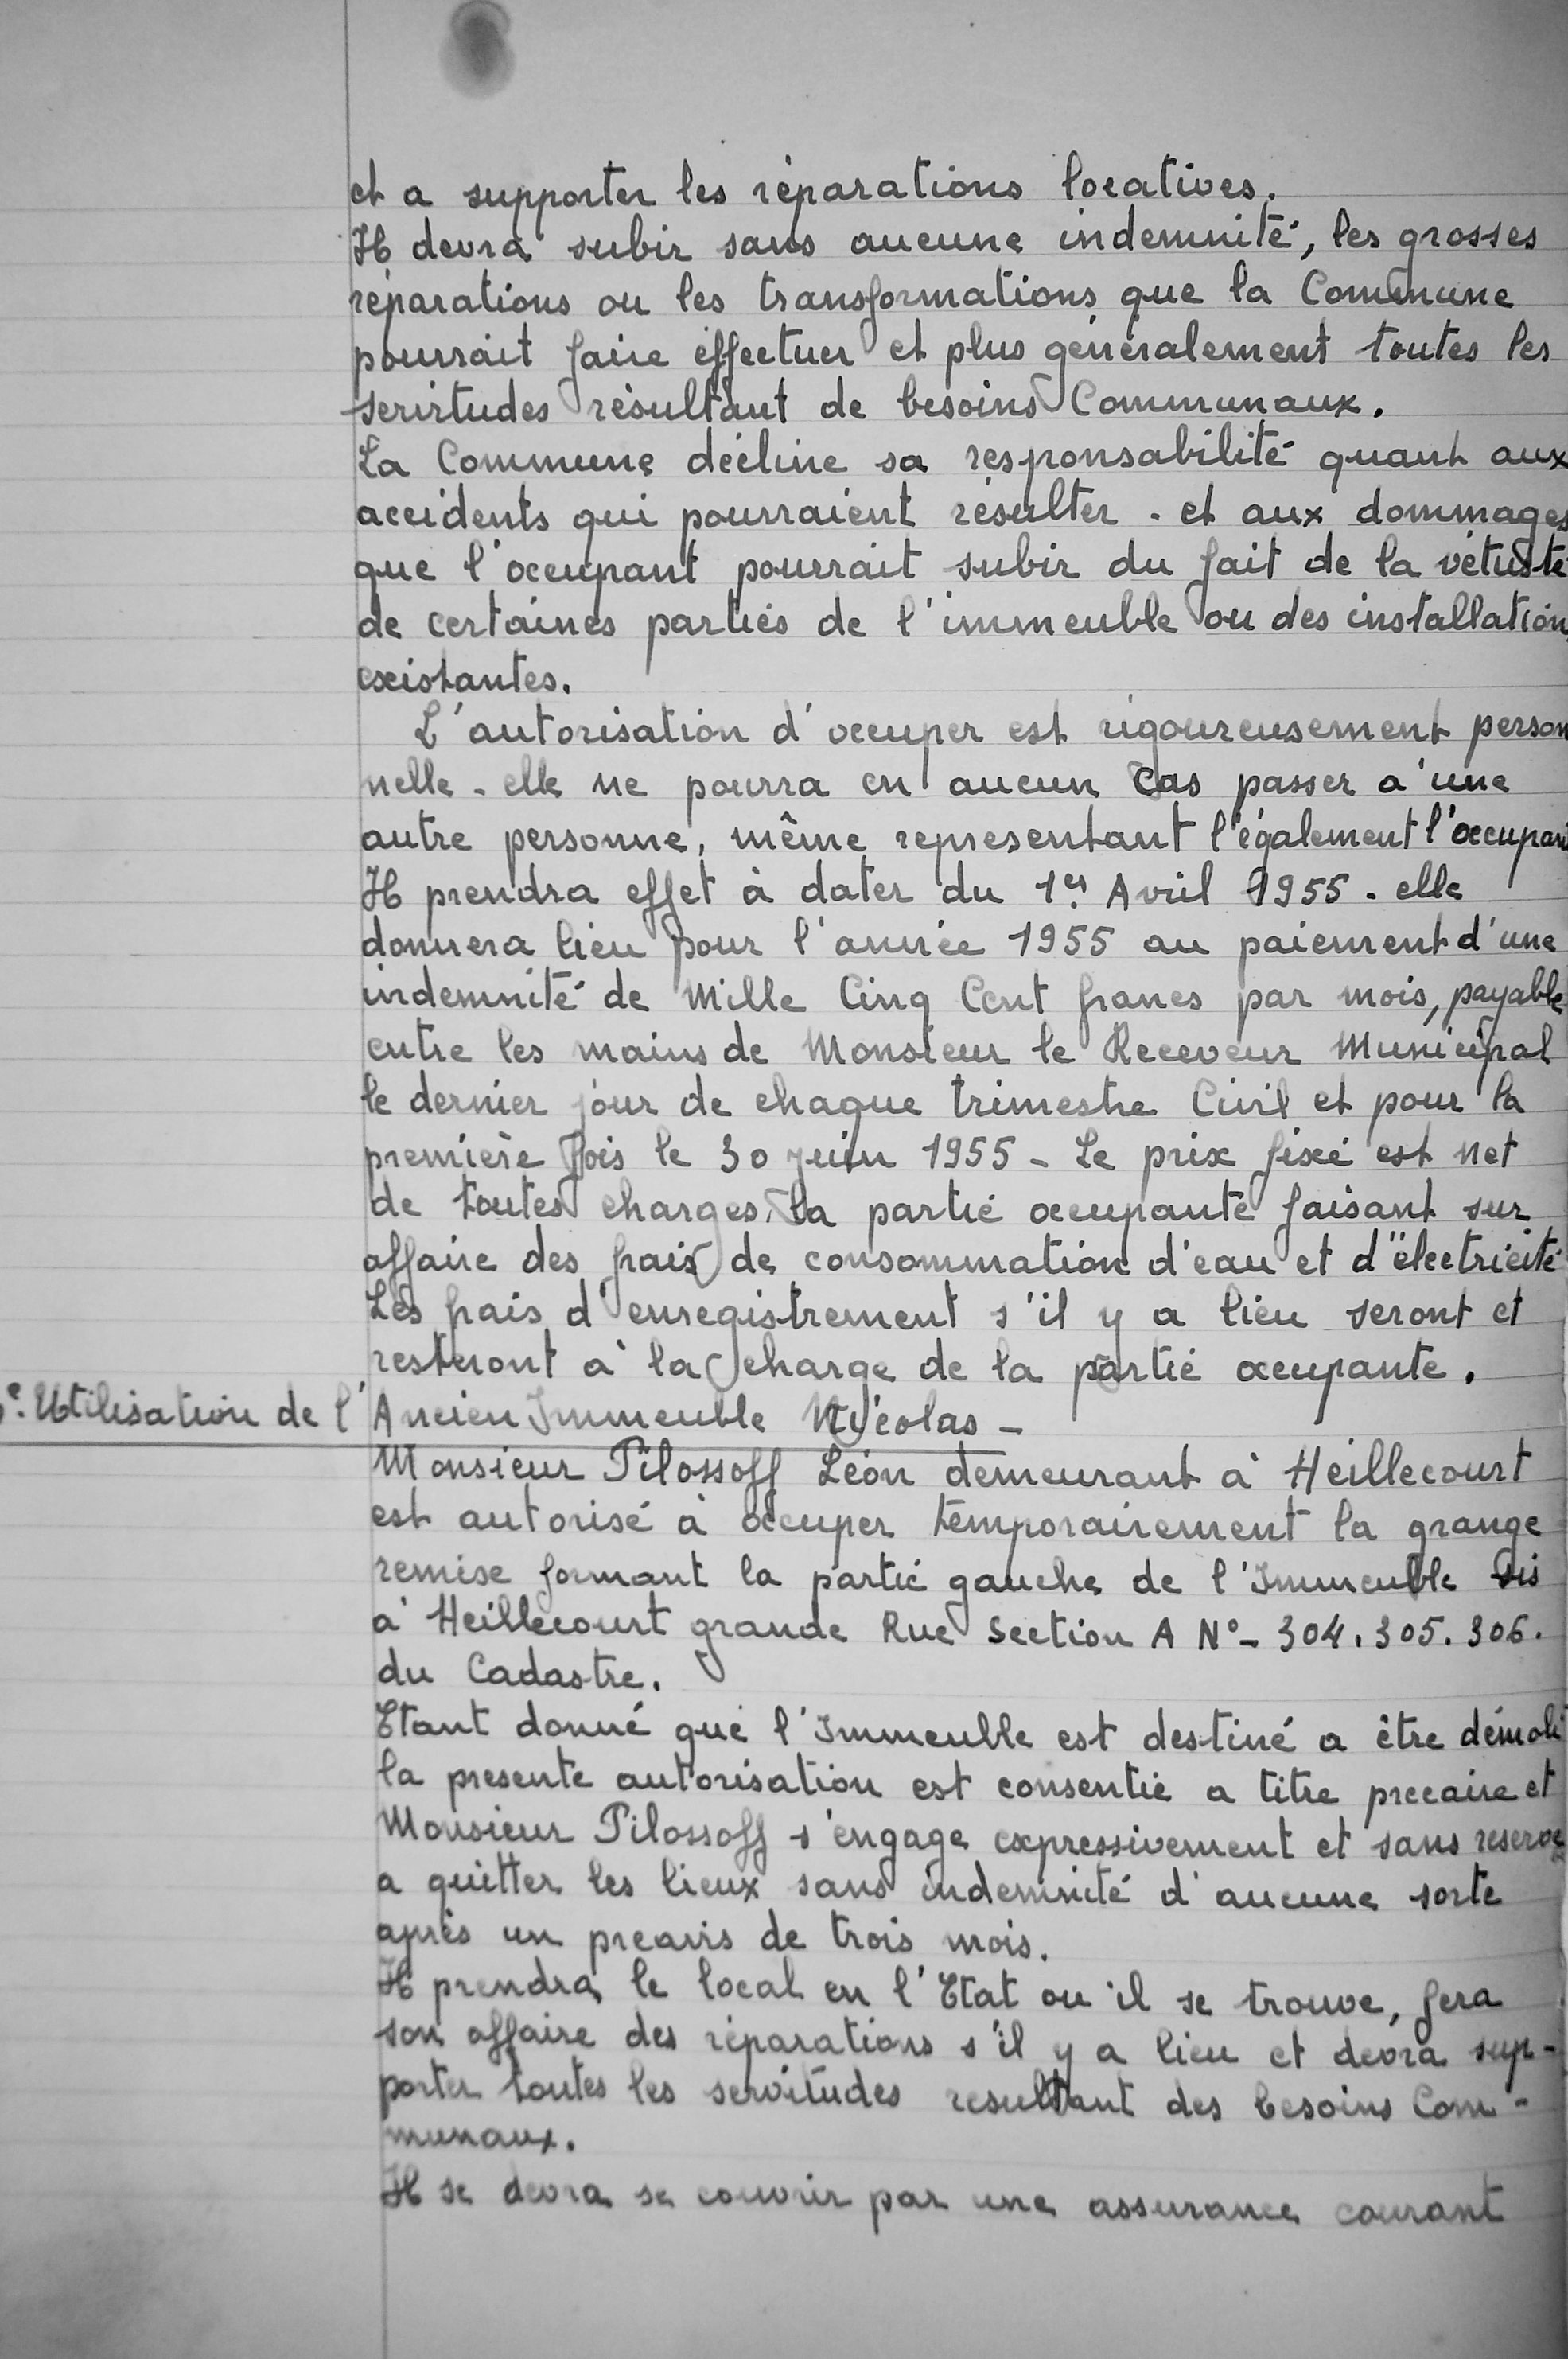 et a supporter les réparations locatives.
Il devra subir sans aucune indemnité, les grosses
réparations ou les transformations que la Commune
pourrait faire éffectuer et plus généralement toutes les
servitudes résultant de besoins Communaux.
La Commune décline sa responsabilité quant aux
accidents qui pourraient résulter - et aux dommages
que l'occupant pourrait subir du fait de la vétusté
de certaines parties de l'immeuble ou des installation
existantes.
L'autorisation d'occuper est rigoureusement person
nelle - elle ne pourra en aucun Cas passer a'une
autre personne, même representant l'également l'occupant
Il prendra effet à dater du 1er Avril 1955 - elle
donnera lieu pour l'année 1955 au paiement d'une
indemnité de Mille Cinq Cent francs par mois, payable
entre les mains de Monsieur le Receveur Municipal
le dernier jour de chaque trimestre Civil et pour la
première fois le 30 juin 1955 - Le prix fixé est net
de toutes charges, la partie occupante faisant sur
affaire des frais de consommation d'eau et d'électricité
Les frais d'enregistrement s'il y a lieu seront et
resteront a' la charge de la partie occupante.
Utilisation de l'Ancien Immeuble Nicolas -
Monsieur Pilossoff Léon demeurant a' Heillecourt
est autorisé à occuper temporairement la grange
remise formant la partie gauche de l'Immeuble sis
a' Heillecourt grande Rue Section A N°- 304. 305. 306.
du Cadastre.
Etant donné que l'Immeuble est destiné a être démoli
la presente autorisation est consentie a titre precaire et
Monsieur Pilossoff s'engage expressivement et sans reserve
a quitter les lieux sans indemnité d'aucune sorte
après un preavis de trois mois.
Il prendra le local en l'Etat ou il se trouve, fera
son affaire des réparations s'il y a lieu et devra sup-
porter toutes les servitudes resultant des besoins Com-
munaux.
Il se devra se couvrir par une assurance courant